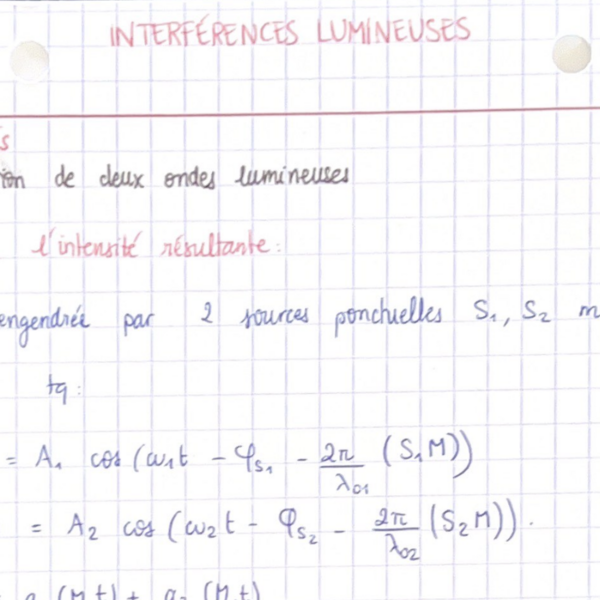 INTERFÉRENCES LUMINEUSES
s
ion de deux ondes lumineuses
l'intensité résultante :
engendrée par 2 sources ponctuelles S₁, S₂ m
tq :
= A₁ cos (ω₁t - φ_S₁ - 2π/λ₀₁ (S₁M))
= A₂ cos (ω₂t - φ_S₂ - 2π/λ₀₂ (S₂M)).
(M,t) + a₂ (M,t)